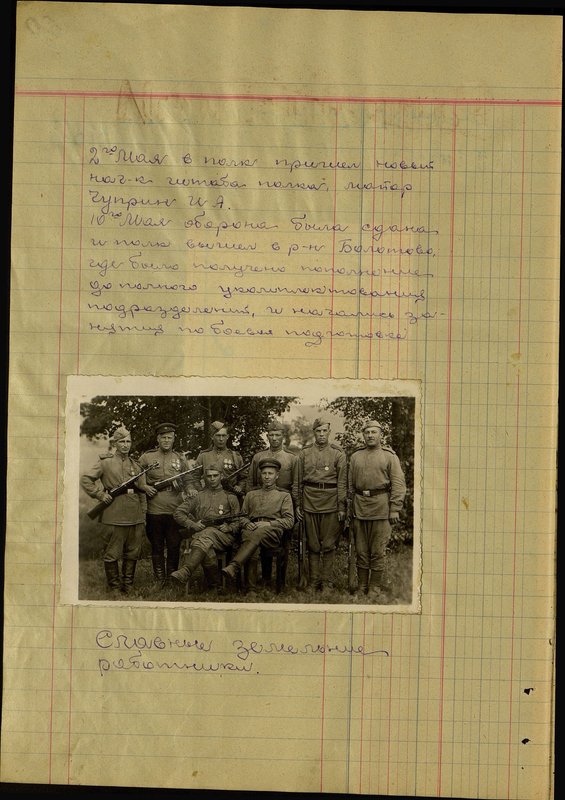 2го Мая в полк пришел новый
нач-к штаба полка, майор
Чуприн И. А.
10го Мая оборона была сдана
и полк вышел в р-н Болотово,
где было получено пополнение
до полного укомплектования
подразделений, и начались за-
нятия по боевой подготовке
Славные земельные
работники.